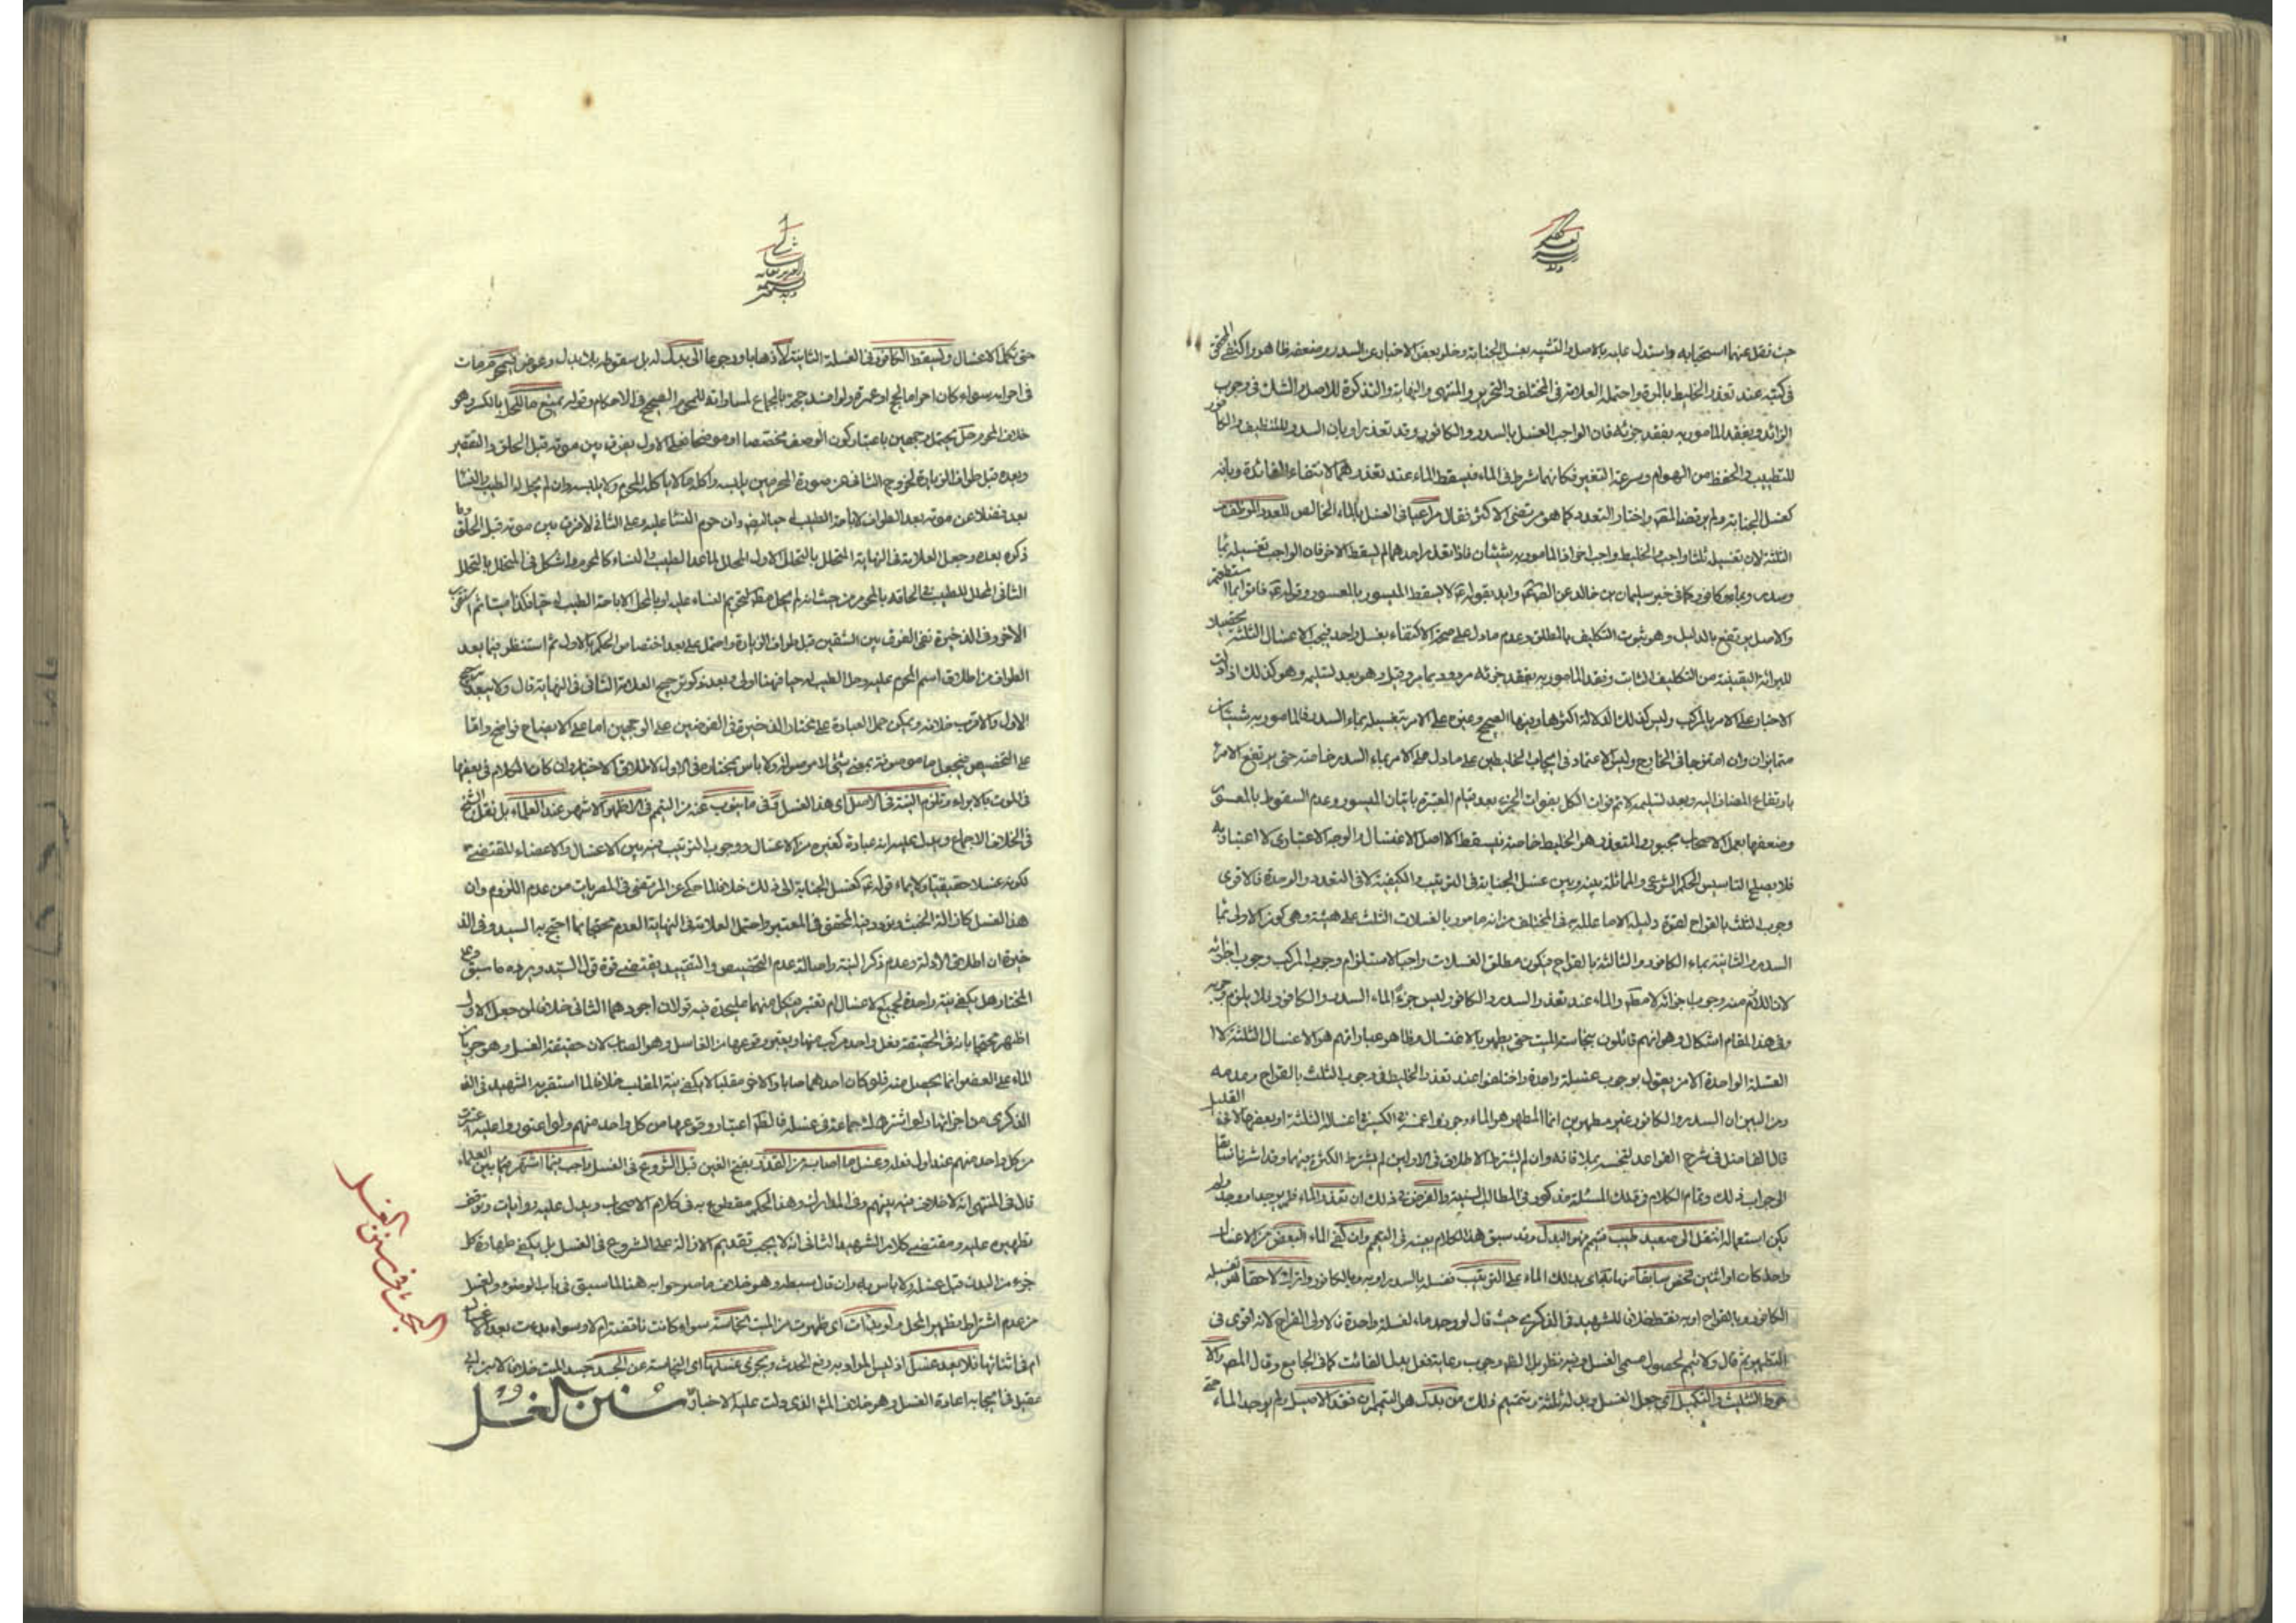 حيث نقل عنهما استحبابه واستدل عليه بالاصل والتشبيه بغسل الجنابة وخلو بعض الاخبار عن السدر وضعفه ظاهر واكتفى المحقق
في كتبه عند تعذر الخليط بالمرة واحتمله العلامة في المختلف والتحرير والمنتهى والنهاية والتذكرة للاصل والشك في وجوب
الزائد وبفقد المامور به بفقد جزئه فان الواجب الغسل بالسدر والكافور وقد تعذر او بان السدر للتنظيف والكافور
للتطييب والحفظ من الهوام وسرعة التغير فكانهما شرط في الماء فيسقط الماء عند تعذرهما لانتفاء الفائدة وبانه
كغسل الجنابة ولم يرتضه المصنف واختار التعدد كما هو مرتضى الاكثر فقال مراعيا في الغسل بالماء الخالص للعدد الموظف
الثلثة لان تغسيله ثلثا واجب والخليط واجب اخر اذ المامور به شيئان فاذا تعذر احدهما لم يسقط الاخر فان الواجب تغسيله بماء
وسدر وبماء وكافور كما في خبر سليمان بن خالد عن الصادق وايد بقوله لا يسقط الميسور بالمعسور وقوله فاتوا بما استطعتم
والاصل يرتفع بالدليل وهو ثبوت التكليف بالمطلق وعدم ما دل على صحة الاكتفاء بغسل واحد فيجب الاغسال الثلثة تحصيلا
للبرائة اليقينية من التكليف الثابت وفقد المامور به بفقد جزئه مردود بما مر وقيل وهو بعد تسليمه وهو كذلك اذا دلت
الاخبار على الامر بالمركب وليس كذلك لدلالة اكثرها وفيها الصحيح وغيره على الامر بتغسيله بماء السدر فالمامور به شيئان
متمايزان وان امتزجا في الخارج وليس الاعتماد في ايجاب الخليطين على ما دل على الامر بماء السدر خاصة حتى يرتفع الامر
بارتفاع المضاف اليه وبعد تسليمه لا تم فوات الكل بفوات الجزء بعد قيام المعتبرة باتيان الميسور وعدم السقوط بالمعسور
وضعفها بعمل الاصحاب مجبور والمتعذر هو الخليط خاصة فيسقط لا اصل الاغتسال والوجه الاعتباري لا اعتبار به
فلا يصلح لتاسيس الحكم الشرعي والمماثلة بينه وبين غسل الجنابة في الترتيب والكيفية لا في التعدد والوحدة فالاقوى
وجوب الثلث بالقراح لقوة دليله لا ما علله به في المختلف من انه مامور بالغسلات الثلث على هيئة وهي كون الاولى بماء
السدر والثانية بماء الكافور والثالثة بالقراح فيكون مطلق الغسلات واجبا لاستلزام وجوب المركب وجوب اجزائه
لان اللازم منه وجوب اجزائه لا مطلقا والماء عند تعذر السدر والكافور ليس جزء الماء السدر والكافور فلا يلزم وجوبه
وفي هذا المقام اشكال وهو انهم قائلون بنجاسة الميت حتى يطهر بالاغتسال وظاهر عباراتهم هو الاغسال الثلثة لا
الغسلة الواحدة الا من يقول بوجوب غسلة واحدة واختلفوا عند تعذر الخليط في وجوب الثلث بالقراح وعدمه
ومن البين ان السدر والكافور غير مطهرين انما المطهر هو الماء وجوزوا غسله في الكثير في اغسلا الثلثة او بعضها لا في القليل
قال الفاضل في شرح القواعد لتنجسه بملاقاته وان لم يشترط الاطلاق في الاولين لم يشترط الكثرة فيهما وقد اشرنا سابقا
الى جواب ذلك وتمام الكلام في تلك المسئلة مذكور في المطالب السنية والغرض في ذلك ان تعذر الماء فلم يوجد او وجد ولم
يكن استعماله انتقل الى صعيد طيب فتيمم فهو البدل وقد سبق هذا الكلام بعينه في التيمم وان كفى الماء البعض من الاغسال
واحدا كان او اثنين فخص سابقا منها بكفاي بذلك الماء على الترتيب فغسله بالسدر او به وبالكافور واترك لاحقا من تغسيله
الكافور وبالقراح او به فقط خلافا للشهيد في الذكرى حيث قال لو وجد ماء لغسلة واحدة فالاولى القراح لانه اقوى في
التطهير ثم قال ولا تيمم لحصول مسمى الغسل وفيه نظر بل الظاهر وجوب رعايته فعل بدل الفائت كما في الجامع وقال المصنف والا
حوط التثليث والتكميل اي جعل الغسل وبدله ثلثة وتتميم ذلك من بدل هو التيمم ان فقد الاصيل ولم يوجد الماء حتى
حتى تكمل الاغسال ويسقط الكافور في الغسلة الثانية لا ذهابا ورجوعا الى بدل له بل سقوطه بلا بدل وعوض لمحرم مات
في احرامه سواء كان احرامه لحج او عمرة ولو افسد حجه بالجماع لمساواته للمحرم الصحيح في الاحكام وقوله يمنع حاللمحل بالكسر وهو
خلاف المحرم حل يحتمل وجهين باعتبار كون الوصف مخصصا او موضحا فعلى الاول يفرق بين موته قبل الحلق والتقصير
وبعده قبل طواف الزيارة لخروج الثاني عن صورة المحرمين بلبسه واكله ما لا ياكله المحرم ولا يلبسه وان لم يحل له الطيب والنساء
بعد فضلا عن موته بعد الطواف لاباحة الطيب له حيا ايضا وان حرم النساء عليه وعلى الثاني لا فرق بين موته قبل الحلق وما
ذكره بعده وجعل العلامة في النهاية المتحلل بالتحلل الاول المحلل لما عدا الطيب والنساء كالمحرم واشكل في المتحلل بالتحلل
الثاني المحلل للطيب في الحاقه بالمحرم من حيث انه لم يحل مطلقا لتحريم النساء عليه او بالمحل لاباحة الطيب له حيا فكذا ميتا ثم استقرب
الاخير وفي الذخيرة نفى الفرق بين الشقين قبل طواف الزيارة واحتمل على بعد اختصاص الحكم بالاول ثم استنظر فيما بعد
الطواف من اطلاق اسم المحرم عليه وحل الطيب له حيا فهنا اولى وبعد ذكر ترجيح العلامة الثاني في النهاية قال ولا يبعد ترجيح
الاول والاقرب خلافه ويمكن حمل العبارة على مختار الذخيرة في الفرضين على الوجهين اما على الايضاح فواضح واما
على التخصيص فبجعل ما موصوفة بمعنى شيء لا موصولة ولا باس بمختاره في الاول لاطلاق الاخبار وان كان الكلام في بعضها
في الموت بالابواء وتلزم النية في الاصل اي هذا الغسل وفي ما ينوب عنه من التيمم في الاظهر الاشهر عند العلماء بل نقل الشيخ
في الخلاف الاجماع ويدل عليه انه عبادة كغيره من الاغسال ووجوب الترتيب فيه بين الاغسال والاعضاء المقتضي
لكونه غسلا حقيقيا ولايماء قوله كغسل الجنابة الى ذلك خلافا لما حكي عن المرتضى في المصريات من عدم اللزوم وان
هذا الغسل كازالة الخبث وتردد فيه المحقق في المعتبر واحتمل العلامة في النهاية العدم محتجا بما احتج به السيد وفي الذ
خيرة ان اطلاق الادلة وعدم ذكر النية واصالة عدم التخصيص والتقييد يقتضي قوة قول السيد ويرده ما سبق وعلى
المختار هل يكفي نية واحدة لجميع الاغسال ام تعتبر لكل منهما عليحدة فيه قولان اجودهما الثاني خلافا لمن جعل الاول
اظهر محتجا بانه في الحقيقة فعل واحد مركب منها ويعتبر وقوعها من الغاسل وهو الصاب لان حقيقة الغسل وهو جريان
الماء على العضو انما يحصل منه فلو كان احدهما صابا والاخر مقلبا لا يكفي نية المقلب خلافا لما استقربه الشهيد في
الذكرى من اجزائها ولو اشترك جماعة في غسله فالظاهر اعتبار وقوعها من كل واحد منهم ولو اعتوروا عليه اعتبرت
من كل واحد منهم عند اول فعله وغسل ما اصابه من القذر بفتح الغين قبل الشروع في الغسل واجب بما اشتهر فيما بين العلماء
قال في المنتهى انه لا خلاف فيه بينهم وفي المدارك وهذا الحكم مقطوع به في كلام الاصحاب ويدل عليه روايات وتوقف
تطهيره عليه ومقتضى كلام الشهيد الثاني انه لا يجب تقديم الازالة على الشروع في الغسل بل يكفي طهارة كل
جزء من البدن قبل غسله ولا باس به وان قال سبطه وهو خلاف ما صرحوا به هنا لما سبق في باب الوضوء والغسل
من عدم اشتراط تطهير المحل ولو بدات اي ظهرت من الميت نجاسة سواء كانت ناقضة ام لا وسواء بدت بعد الاغسال
ام في اثنائها فلا يعيد غسل اذ ليس المراد به رفع الحدث ويجزي غسلها اي النجاسة عن الجسد جسد الميت خلافا لابن ابي
عقيل في ايجابه اعادة الغسل وهو خلاف المذهب الذي دلت عليه الاخبار سنن الغسل
المبحث في سنن الغسل